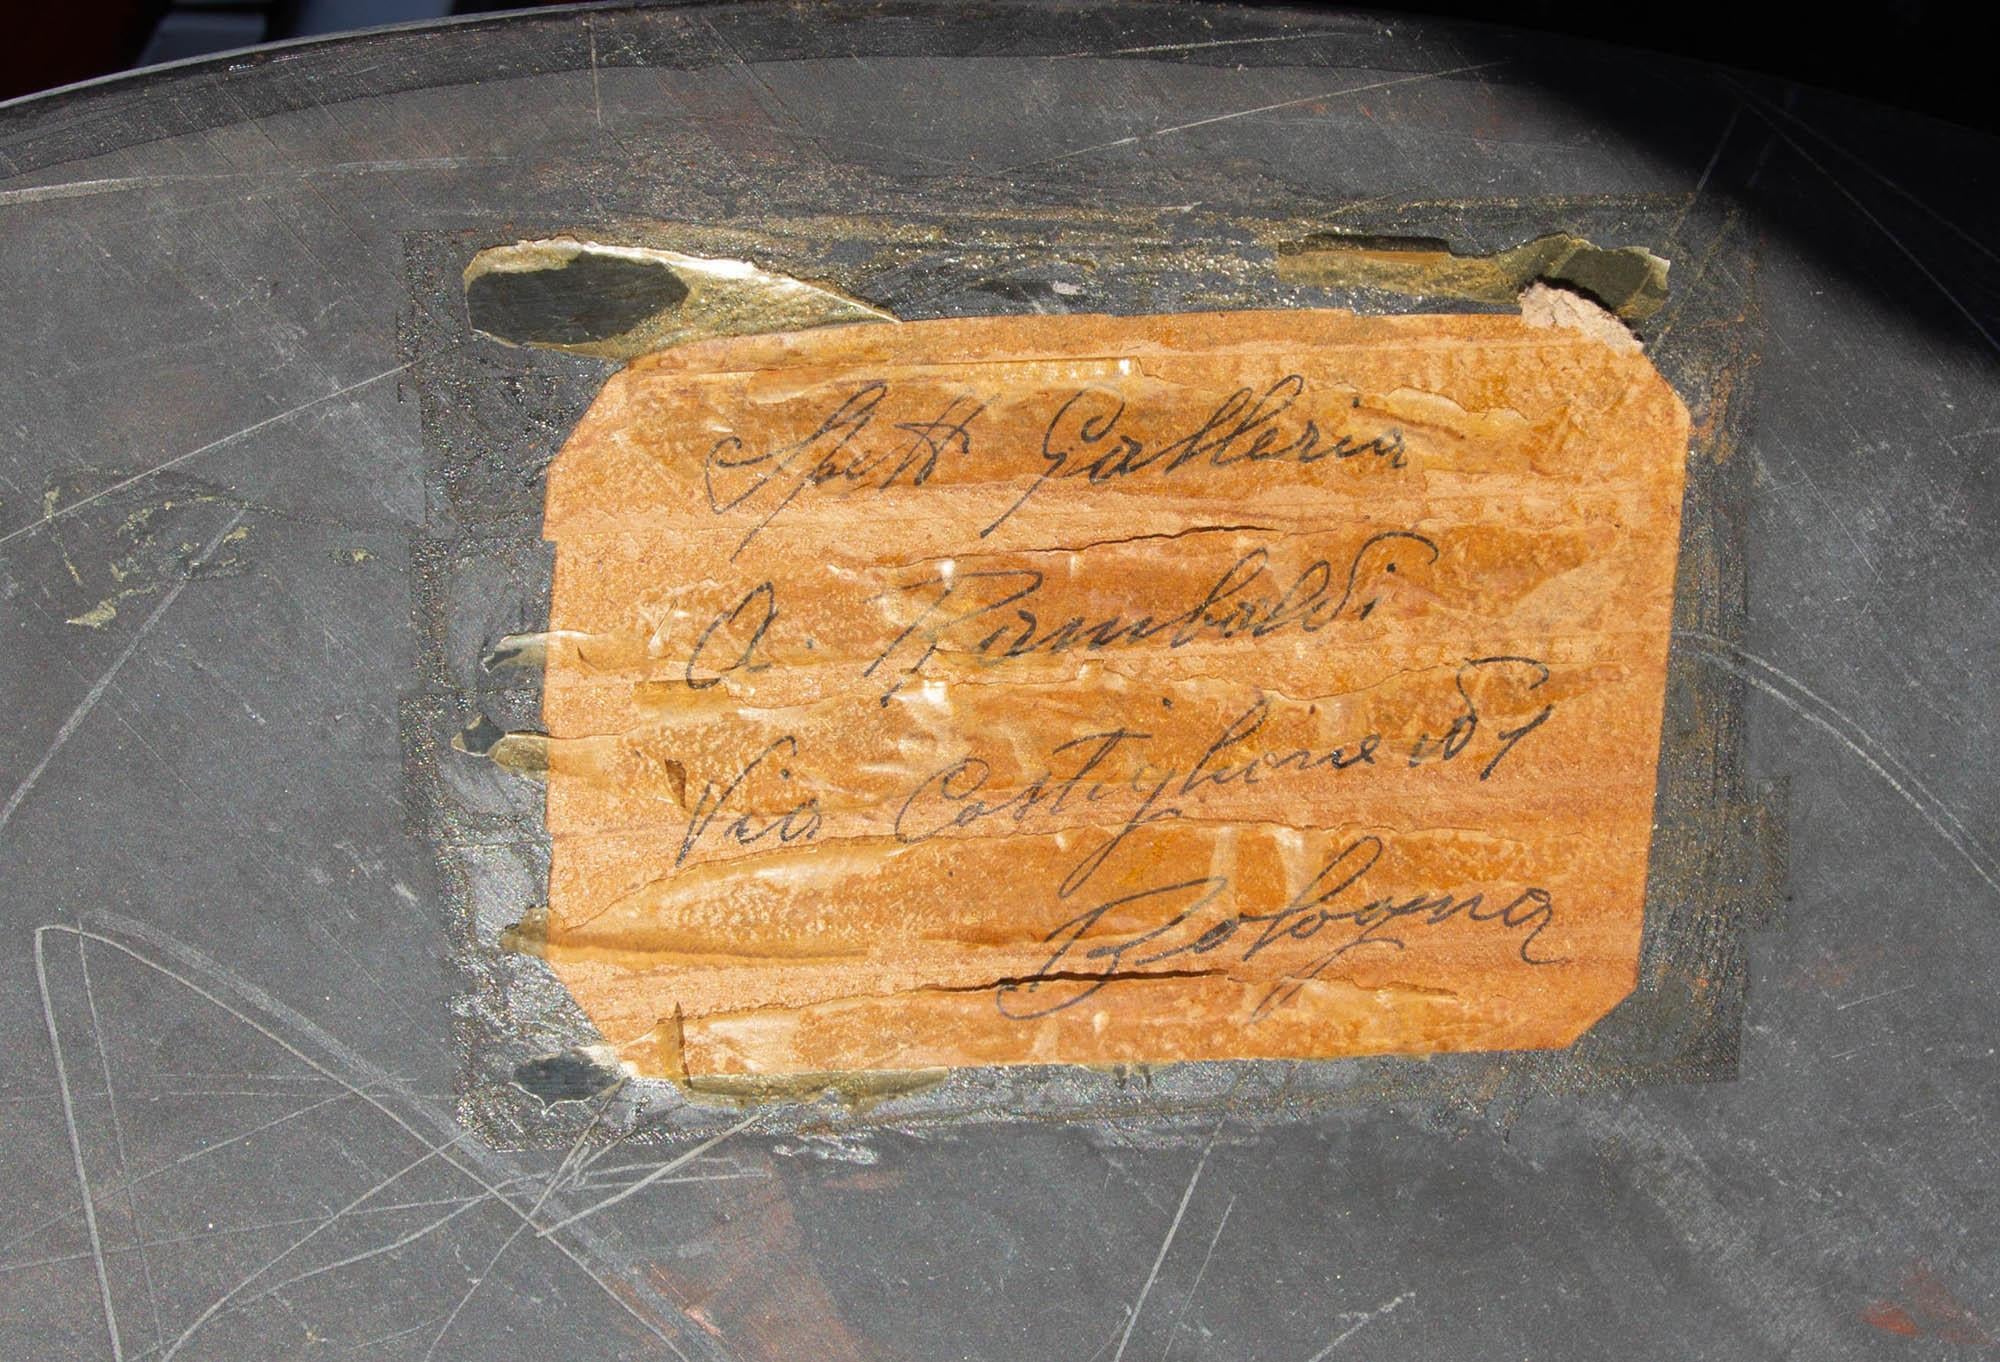 Spett Galleria
A. Rambaldi
Via Castiglione
Bologna